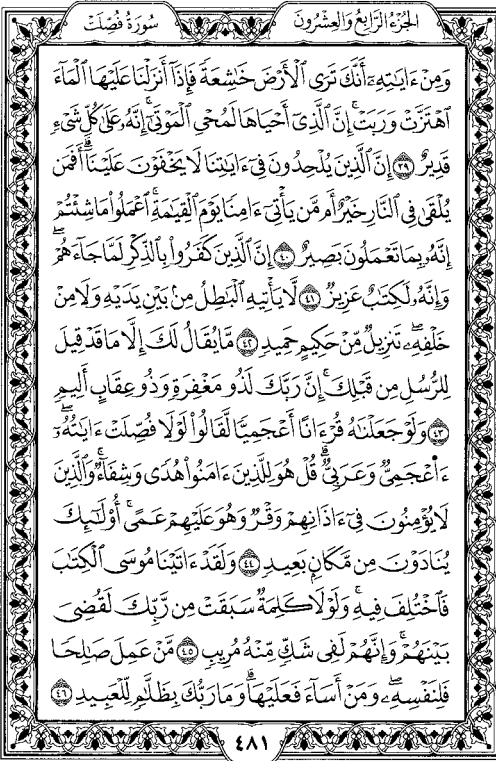 سُورَةُ فُصِّلَتْ
الجُزْءُ الرَّابِعُ وَالعِشْرُونَ
وَمِنْ ءَايَٰتِهِۦٓ أَنَّكَ تَرَى ٱلْأَرْضَ خَٰشِعَةً فَإِذَآ أَنزَلْنَا عَلَيْهَا ٱلْمَآءَ
ٱهْتَزَّتْ وَرَبَتْ ۚ إِنَّ ٱلَّذِىٓ أَحْيَاهَا لَمُحْىِ ٱلْمَوْتَىٰٓ ۚ إِنَّهُۥ عَلَىٰ كُلِّ شَىْءٍ
قَدِيرٌ ٣٩ إِنَّ ٱلَّذِينَ يُلْحِدُونَ فِىٓ ءَايَٰتِنَا لَا يَخْفَوْنَ عَلَيْنَآ ۗ أَفَمَن
يُلْقَىٰ فِى ٱلنَّارِ خَيْرٌ أَم مَّن يَأْتِىٓ ءَامِنًا يَوْمَ ٱلْقِيَٰمَةِ ۚ ٱعْمَلُوا۟ مَا شِئْتُمْ ۖ
إِنَّهُۥ بِمَا تَعْمَلُونَ بَصِيرٌ ٤٠ إِنَّ ٱلَّذِينَ كَفَرُوا۟ بِٱلذِّكْرِ لَمَّا جَآءَهُمْ ۖ
وَإِنَّهُۥ لَكِتَٰبٌ عَزِيزٌ ٤١ لَّا يَأْتِيهِ ٱلْبَٰطِلُ مِنۢ بَيْنِ يَدَيْهِ وَلَا مِنْ
خَلْفِهِۦ ۖ تَنزِيلٌ مِّنْ حَكِيمٍ حَمِيدٍ ٤٢ مَّا يُقَالُ لَكَ إِلَّا مَا قَدْ قِيلَ
لِلرُّسُلِ مِن قَبْلِكَ ۚ إِنَّ رَبَّكَ لَذُو مَغْفِرَةٍ وَذُو عِقَابٍ أَلِيمٍ
٤٣ وَلَوْ جَعَلْنَٰهُ قُرْءَانًا أَعْجَمِيًّا لَّقَالُوا۟ لَوْلَا فُصِّلَتْ ءَايَٰتُهُۥٓ ۖ
ءَا۬عْجَمِىٌّ وَعَرَبِىٌّ ۗ قُلْ هُوَ لِلَّذِينَ ءَامَنُوا۟ هُدًى وَشِفَآءٌ ۖ وَٱلَّذِينَ
لَا يُؤْمِنُونَ فِىٓ ءَاذَانِهِمْ وَقْرٌ وَهُوَ عَلَيْهِمْ عَمًى ۚ أُو۟لَٰٓئِكَ
يُنَادَوْنَ مِن مَّكَانٍۭ بَعِيدٍ ٤٤ وَلَقَدْ ءَاتَيْنَا مُوسَى ٱلْكِتَٰبَ
فَٱخْتُلِفَ فِيهِ ۗ وَلَوْلَا كَلِمَةٌ سَبَقَتْ مِن رَّبِّكَ لَقُضِىَ
بَيْنَهُمْ ۚ وَإِنَّهُمْ لَفِى شَكٍّ مِّنْهُ مُرِيبٍ ٤٥ مَّنْ عَمِلَ صَٰلِحًا
فَلِنَفْسِهِۦ ۖ وَمَنْ أَسَآءَ فَعَلَيْهَا ۗ وَمَا رَبُّكَ بِظَلَّٰمٍ لِّلْعَبِيدِ ٤٦
٤٨١